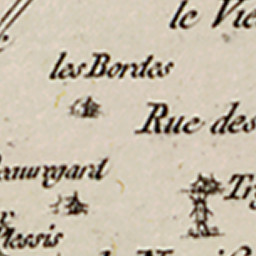 le Vie
les Bordes
Rue des
Beauregard
Plessis